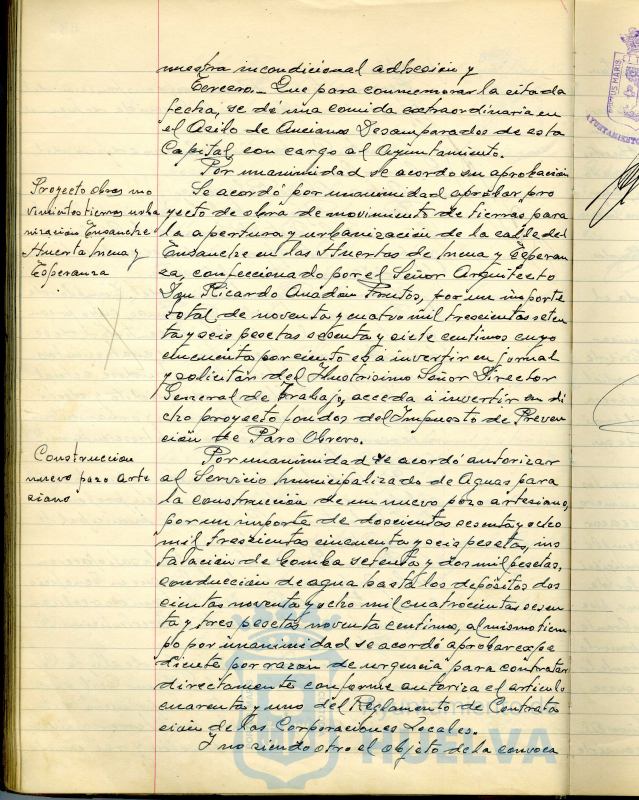 nuestra incondicional adhesion y
Tercero.- Que para conmemorar la citada
fecha, se dé una comida extraordinaria en
el Asilo de Ancianos Desamparados de esta
Capital, con cargo al Ayuntamiento.
Por unanimidad se acordo su aprobación
Proyecto obras mo
vimientos tierras urba
nización Ensanche
Huerta Mena y
Esperanza
Se acordó por unanimidad aprobar pro
yecto de obra de movimiento de tierras para
la apertura y urbanización de la calle del
Ensanche en las Huertas de Mena y Esperan
za, confeccionado por el Señor Arquitecto
Don Ricardo Anadón Frutos, por un importe
total de noventa y cuatro mil trescientas seten
ta y seis pesetas sesenta y siete centimos cuyo
cincuenta por ciento es a invertir en jornal
y solicitar del Ilustrisimo Señor Director
General de Trabajo, acceda a invertir en di
cho proyecto fondos del Impuesto de Preven
ción de Paro Obrero.
Construcion
nuevo pozo arte
siano
Por unanimidad se acordó autorizar
al Servicio Municipalizado de Aguas para
la construcción de un nuevo pozo artesiano,
por un importe de doscientas sesenta y ocho
mil trescientas cincuenta y seis pesetas, ins
talación de bomba setenta y dos mil pesetas,
conducción de agua hasta los depósitos dos
cientas noventa y ocho mil cuatrocientas sesen
ta y tres pesetas noventa centimos, al mismo tiem
po por unanimidad se acordó aprobar expe
diente por razón de urgencia para contratar
directamente conforme autoriza el articulo
cuarenta y uno del Reglamento de Contrata
ción de las Corporaciones Locales.
Y no siendo otro el objeto de la convoca
HUELVA